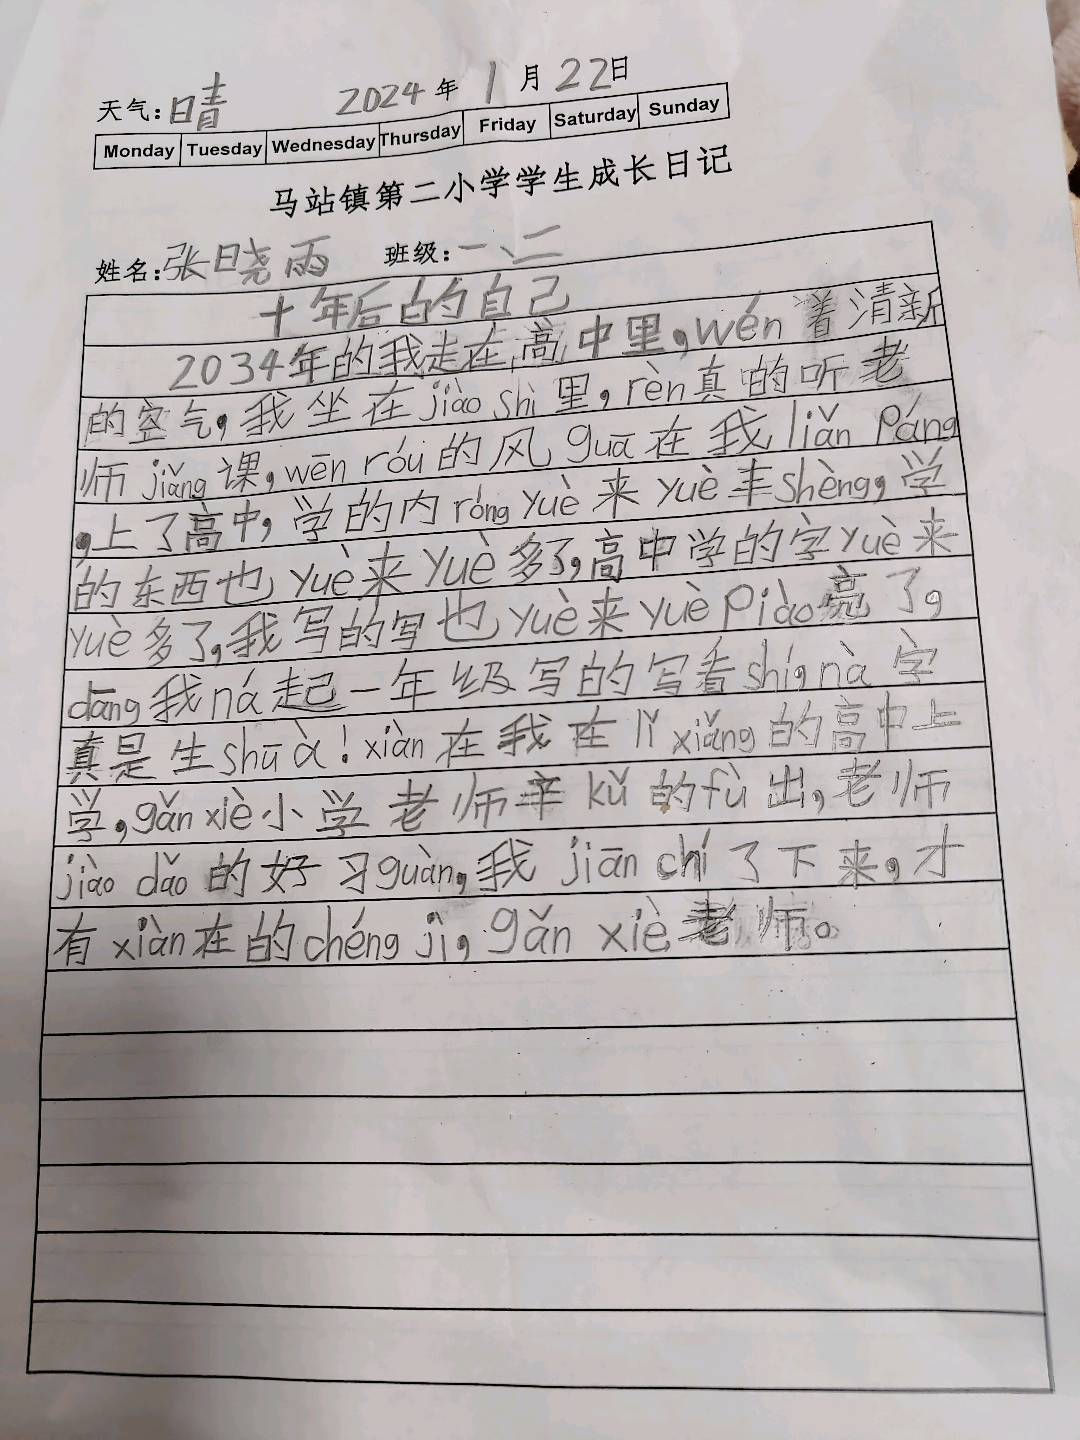 天气:晴 2024年1月22日
Monday Tuesday Wednesday Thursday Friday Saturday Sunday
马站镇第二小学学生成长日记
姓名:张晓雨 班级:一、二
十年后的自己
2034年的我走在高中里,wén着清新
的空气,我坐在jiào shì里,rèn真的听老
师jiǎng课,wēn róu的风guā在我liǎn páng
,上了高中,学的内róng yuè来yuè丰shèng,学
的东西也yuè来yuè多了,高中学的字yuè来
yuè多了,我写的写也yuè来yuè piào亮了,
dāng我ná起一年级写的写看shí,nà字
真是生shū à!xiàn在我在lǐ xiǎng的高中上
学,gǎn xiè小学老师辛kǔ的fù出,老师
jiào dǎo的好习guàn,我jiān chí了下来,才
有xiàn在的chéng jì,gǎn xiè老师。